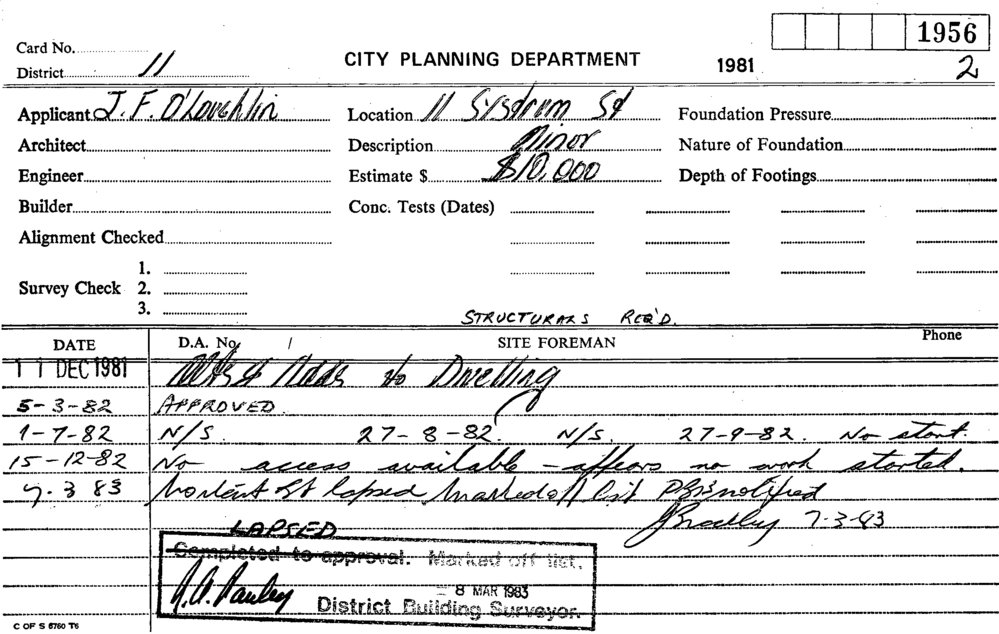 1956
Card No.
CITY PLANNING DEPARTMENT 1981 2
District 11
Applicant J. F. O'Loughlin Location 11 St Foundation Pressure
Architect Description Minor Nature of Foundation
Engineer Estimate $ $10,000 Depth of Footings
Builder Conc. Tests (Dates)
Alignment Checked
1.
Survey Check 2.
3.
STRUCTURALS REQ'D.
DATE D.A. No. / SITE FOREMAN Phone
11 DEC 1981 Alts & Adds to Dwelling
5-3-82 APPROVED.
1-7-82 N/S. 27-8-82. N/S. 27-9-82. No start.
15-12-82 No access available - appears no work started.
7.3 83 lapsed Marked off list notified
JBradley 7-3-83
LAPSED
Completed to approval. Marked off list.
- 8 MAR 1983
District Building Surveyor.
C OF S 5760 T6